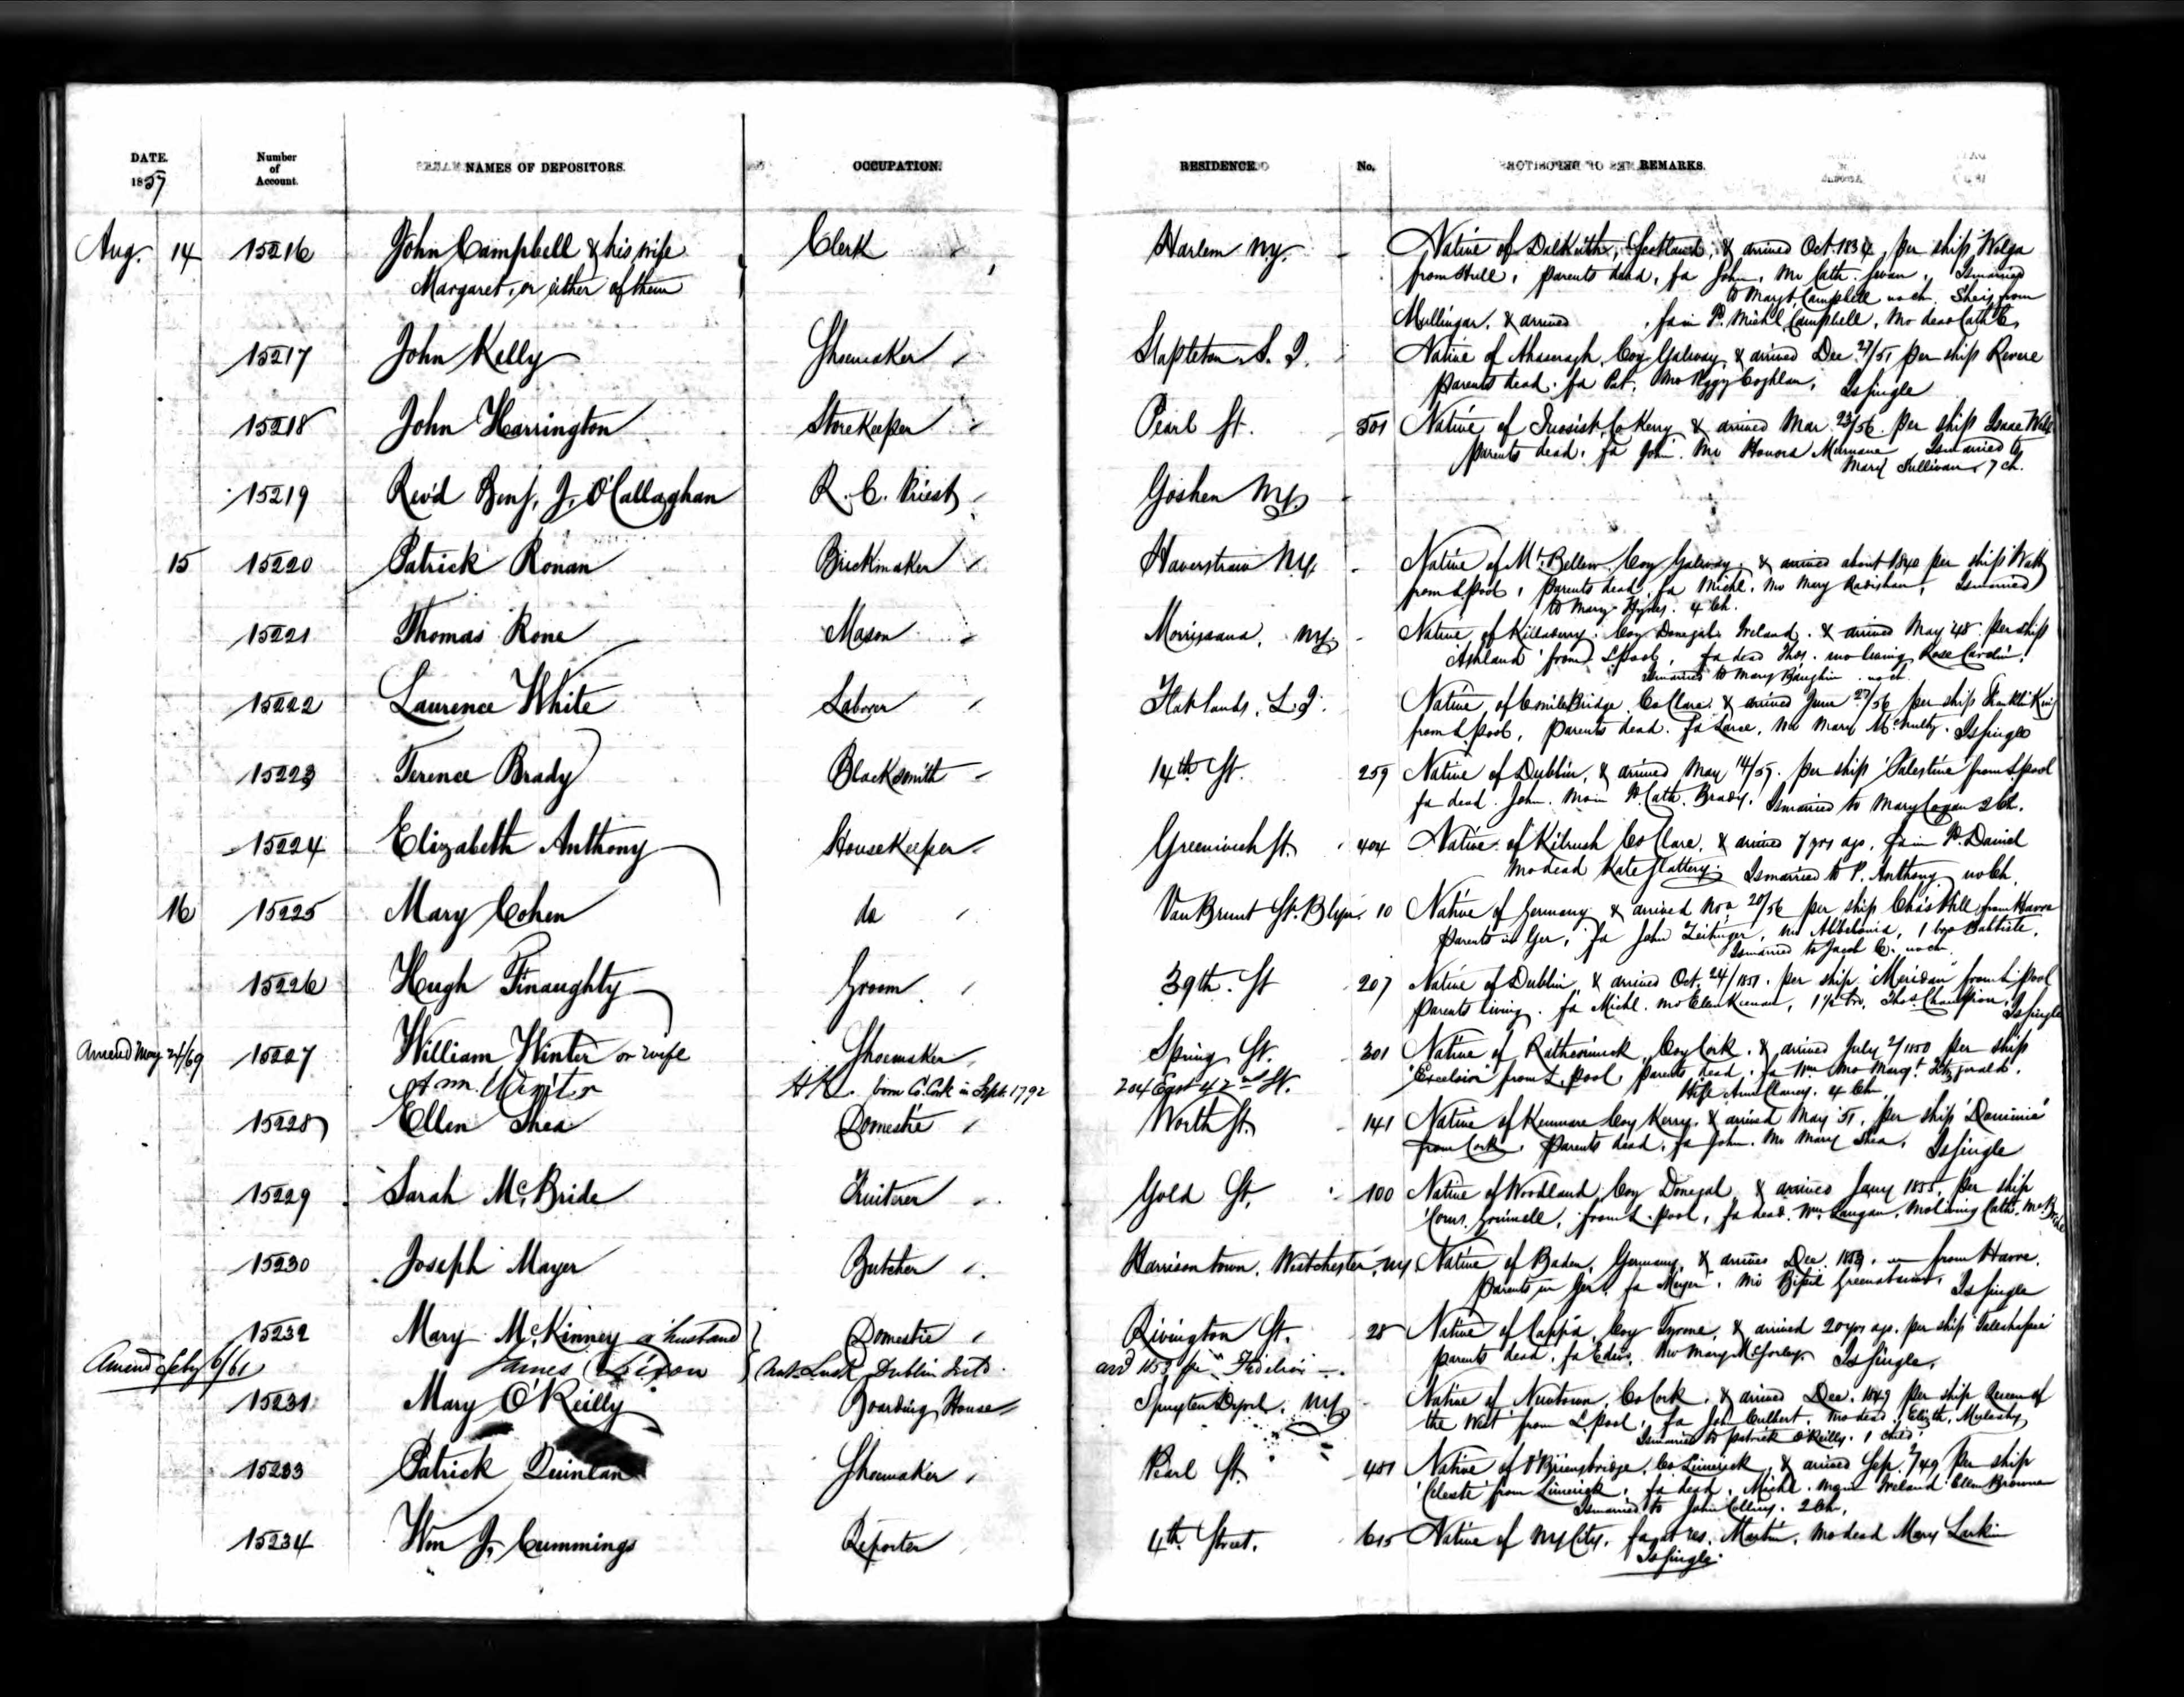 DATE. Number of Account. NAMES OF DEPOSITORS. OCCUPATION. RESIDENCE. No. REMARKS.
1857
Aug. 14 15216 John Campbell & his wife Clerk Harlem NY. - Native of Dalkeith, Scotland, & arrived Oct. 1834, per ship Volga
Margaret, or either of them from Hull, parents dead, fa John, Mo Cath. Swan, Is married
to Margt. Campbell no ch. She is from
Mullingar, & arrived , fa in P. Michl Campbell, Mo dead Cath C,
15217 John Kelly Shoemaker Stapleton S. I. Native of Ahascragh, Coy Galway, & arrived Dec 27/51 per ship Revere
parents dead, fa Pat, Mo Peggy Coghlan, Is single
15218 John Harrington Storekeeper Pearl St. 501 Native of Tuosist, Co Kerry & arrived Mar 23/56. per ship Isaac Webb
parents dead, fa John. Mo Honora Murnane Is married to
Mary Sullivan 7 ch.
15219 Rev'd Benj. J. O'Callaghan R. C. Priest Goshen NY. -
15 15220 Patrick Ronan Brickmaker Haverstraw N.Y. - Native of Mt. Bellew Coy Galway, & arrived about 1840 per ship
from L.pool, parents dead, fa Michl, Mo Mary Is married
to Mary Hynes. 4 Ch.
15221 Thomas Rone Mason Morrisana, NY. - Native of Coy Donegal Ireland. & arrived May '48 per ship
'Ashland' from L.pool, fa dead Thos. mo living Rose Carolin.
Is married to Mary no ch
15222 Laurence White Laborer Flatlands, L.I. Native of 6 mile Bridge. Co Clare & arrived June 27/56 per ship Franklin King
from L.pool, parents dead. fa Larce, Mo Mary McNulty. Is single
15223 Terence Brady Blacksmith 14th St. 259 Native of Dublin, & arrived May 14/57. per ship 'Palestine' from L.pool
fa dead. John. Mo in P. Cath. Brady. Is married to Mary Cogan 2 Ch.
15224 Elizabeth Anthony Housekeeper Greenwich St. 404 Native of Kilrush Co Clare, & arrived 7 yrs ago, fa in P. Daniel
Mo dead Kate Slattery. Is married to P. Anthony no Ch.
16 15225 Mary Cohen do Van Brunt St. Blyn. 10 Native of Germany & arrived Nov 20/56 per ship Chas Hill from Havre
parents in Ger, fa John Mo 1 bro Babtiste,
Is married to Jacob C. no ch
15226 Hugh Finaughty Groom 39th. St 207 Native of Dublin, & arrived Oct. 24/1851. per ship 'Meridian' from L.pool
Parents living. fa Michl. Mo Ellen Kiernan, 1 1/2 bro, Thos. Champion, Is single
Amend May 24/69 15227 William Winter or wife Shoemaker Spring St. 301 Native of Rathcormick, Coy Cork, & arrived July 2/1850 per ship
Ann Winter H K. born Co. Cork in Sept. 1792 204 East 42nd St. 'Excelsior' from L.pool, parents dead, fa Wm Mo Margt. Fitzgerald.
Wife Ann Clancy. 4 Ch
15228 Ellen Shea Domestic Worth St. 141 Native of Kenmare Coy Kerry. & arrived May '51, per ship 'Dominic'
from Cork, parents dead, fa John. Mo Mary Shea, Is single
15229 Sarah McBride Fruiterer Gold St. 100 Native of Woodland, Coy Donegal & arrived Jany 1855, per ship
'Corns. Grinnell, from L.pool, fa dead. Wm. Langan. Mo living Cath. McBride
15230 Joseph Mayer Butcher Harrison town, Westchester, NY. Native of Baden, Germany, & arrived Dec. 1853. from Havre.
Parents in Ger, fa Meyer. Mo Is single
15232 Mary McKinney or husband Domestic Rivington St. 28 Native of Cappa, Coy Tyrone, & arrived 20 yrs ago. per ship
Amend Feby 6/61 James Dixon Nat. Lusk Dublin Ireld. arrd 1852 pr "Fidelia" parents dead, fa Mo Mary McSorley. Is single.
15231 Mary O'Reilly Boarding House Spuyten Duyvil. NY - Native of Newtown, Co Cork, & arrived Dec. 1849 per ship Queen of
the West from L'pool, fa John Culbert, Mo dead, Elizth, Mulcahy
Is married to Patrick O'Reilly. 1 child.
15233 Patrick Quinlan Shoemaker Pearl St. 481 Native of O'Briensbridge, Co Limerick, & arrived Sep. 7/49 per ship
'Celeste' from Limerick, fa dead, Michl. Mo in Ireland Ellen Browne
Is married to John Collins. 2 Ch.
15234 Wm J. Cummings Reporter 4th. Street. 615 Native of NY City. fa at res. Martin. Mo dead Mary Larkin
Is single.